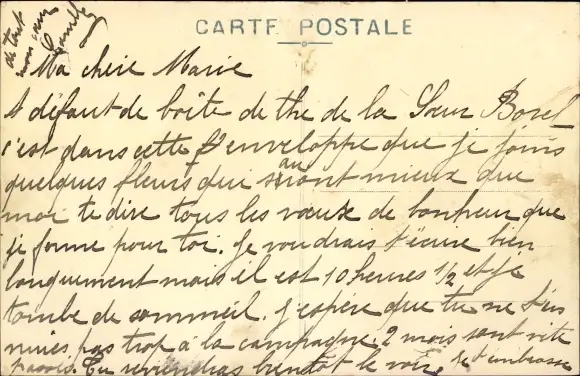 CARTE POSTALE
de tout
mon cœur
Ma chère Marie
A défaut de boîte de thé de la Sœur Borel
c'est dans cette enveloppe que je joins
quelques fleurs qui sauront mieux que
moi te dire tous les vœux de bonheur que
je forme pour toi. Je voudrais t'écrire bien
longuement mais il est 10 heures 1/2 et je
tombe de sommeil. J'espère que tu ne t'en
nuies pas trop à la campagne, 2 mois sont vite
passés. Tu reviendras bientôt le voir. Je t'embrasse